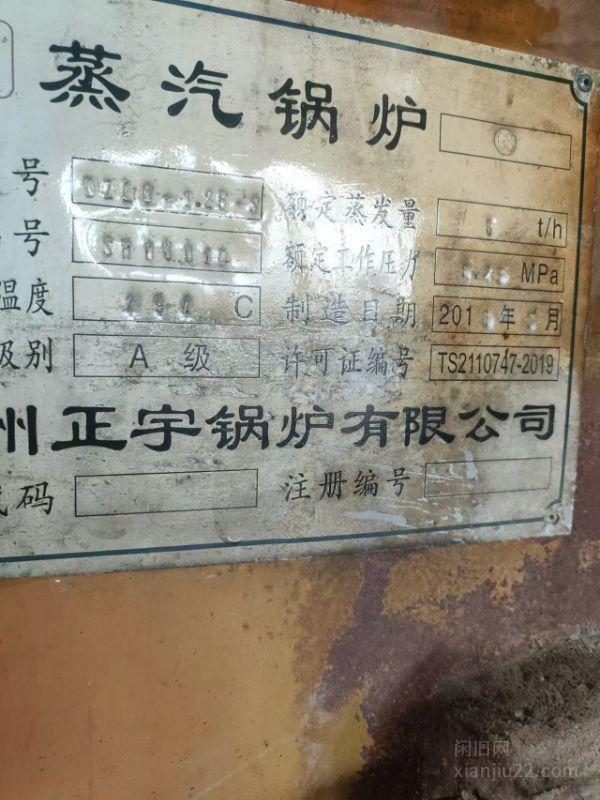 蒸汽锅炉
号 额定蒸发量 t/h
号 额定工作压力 MPa
温度 ℃ 制造日期 201 年 月
级别 A 级 许可证编号 TS2110747-2019
州正宇锅炉有限公司
代码 注册编号
闲旧网
xianjiu22.com